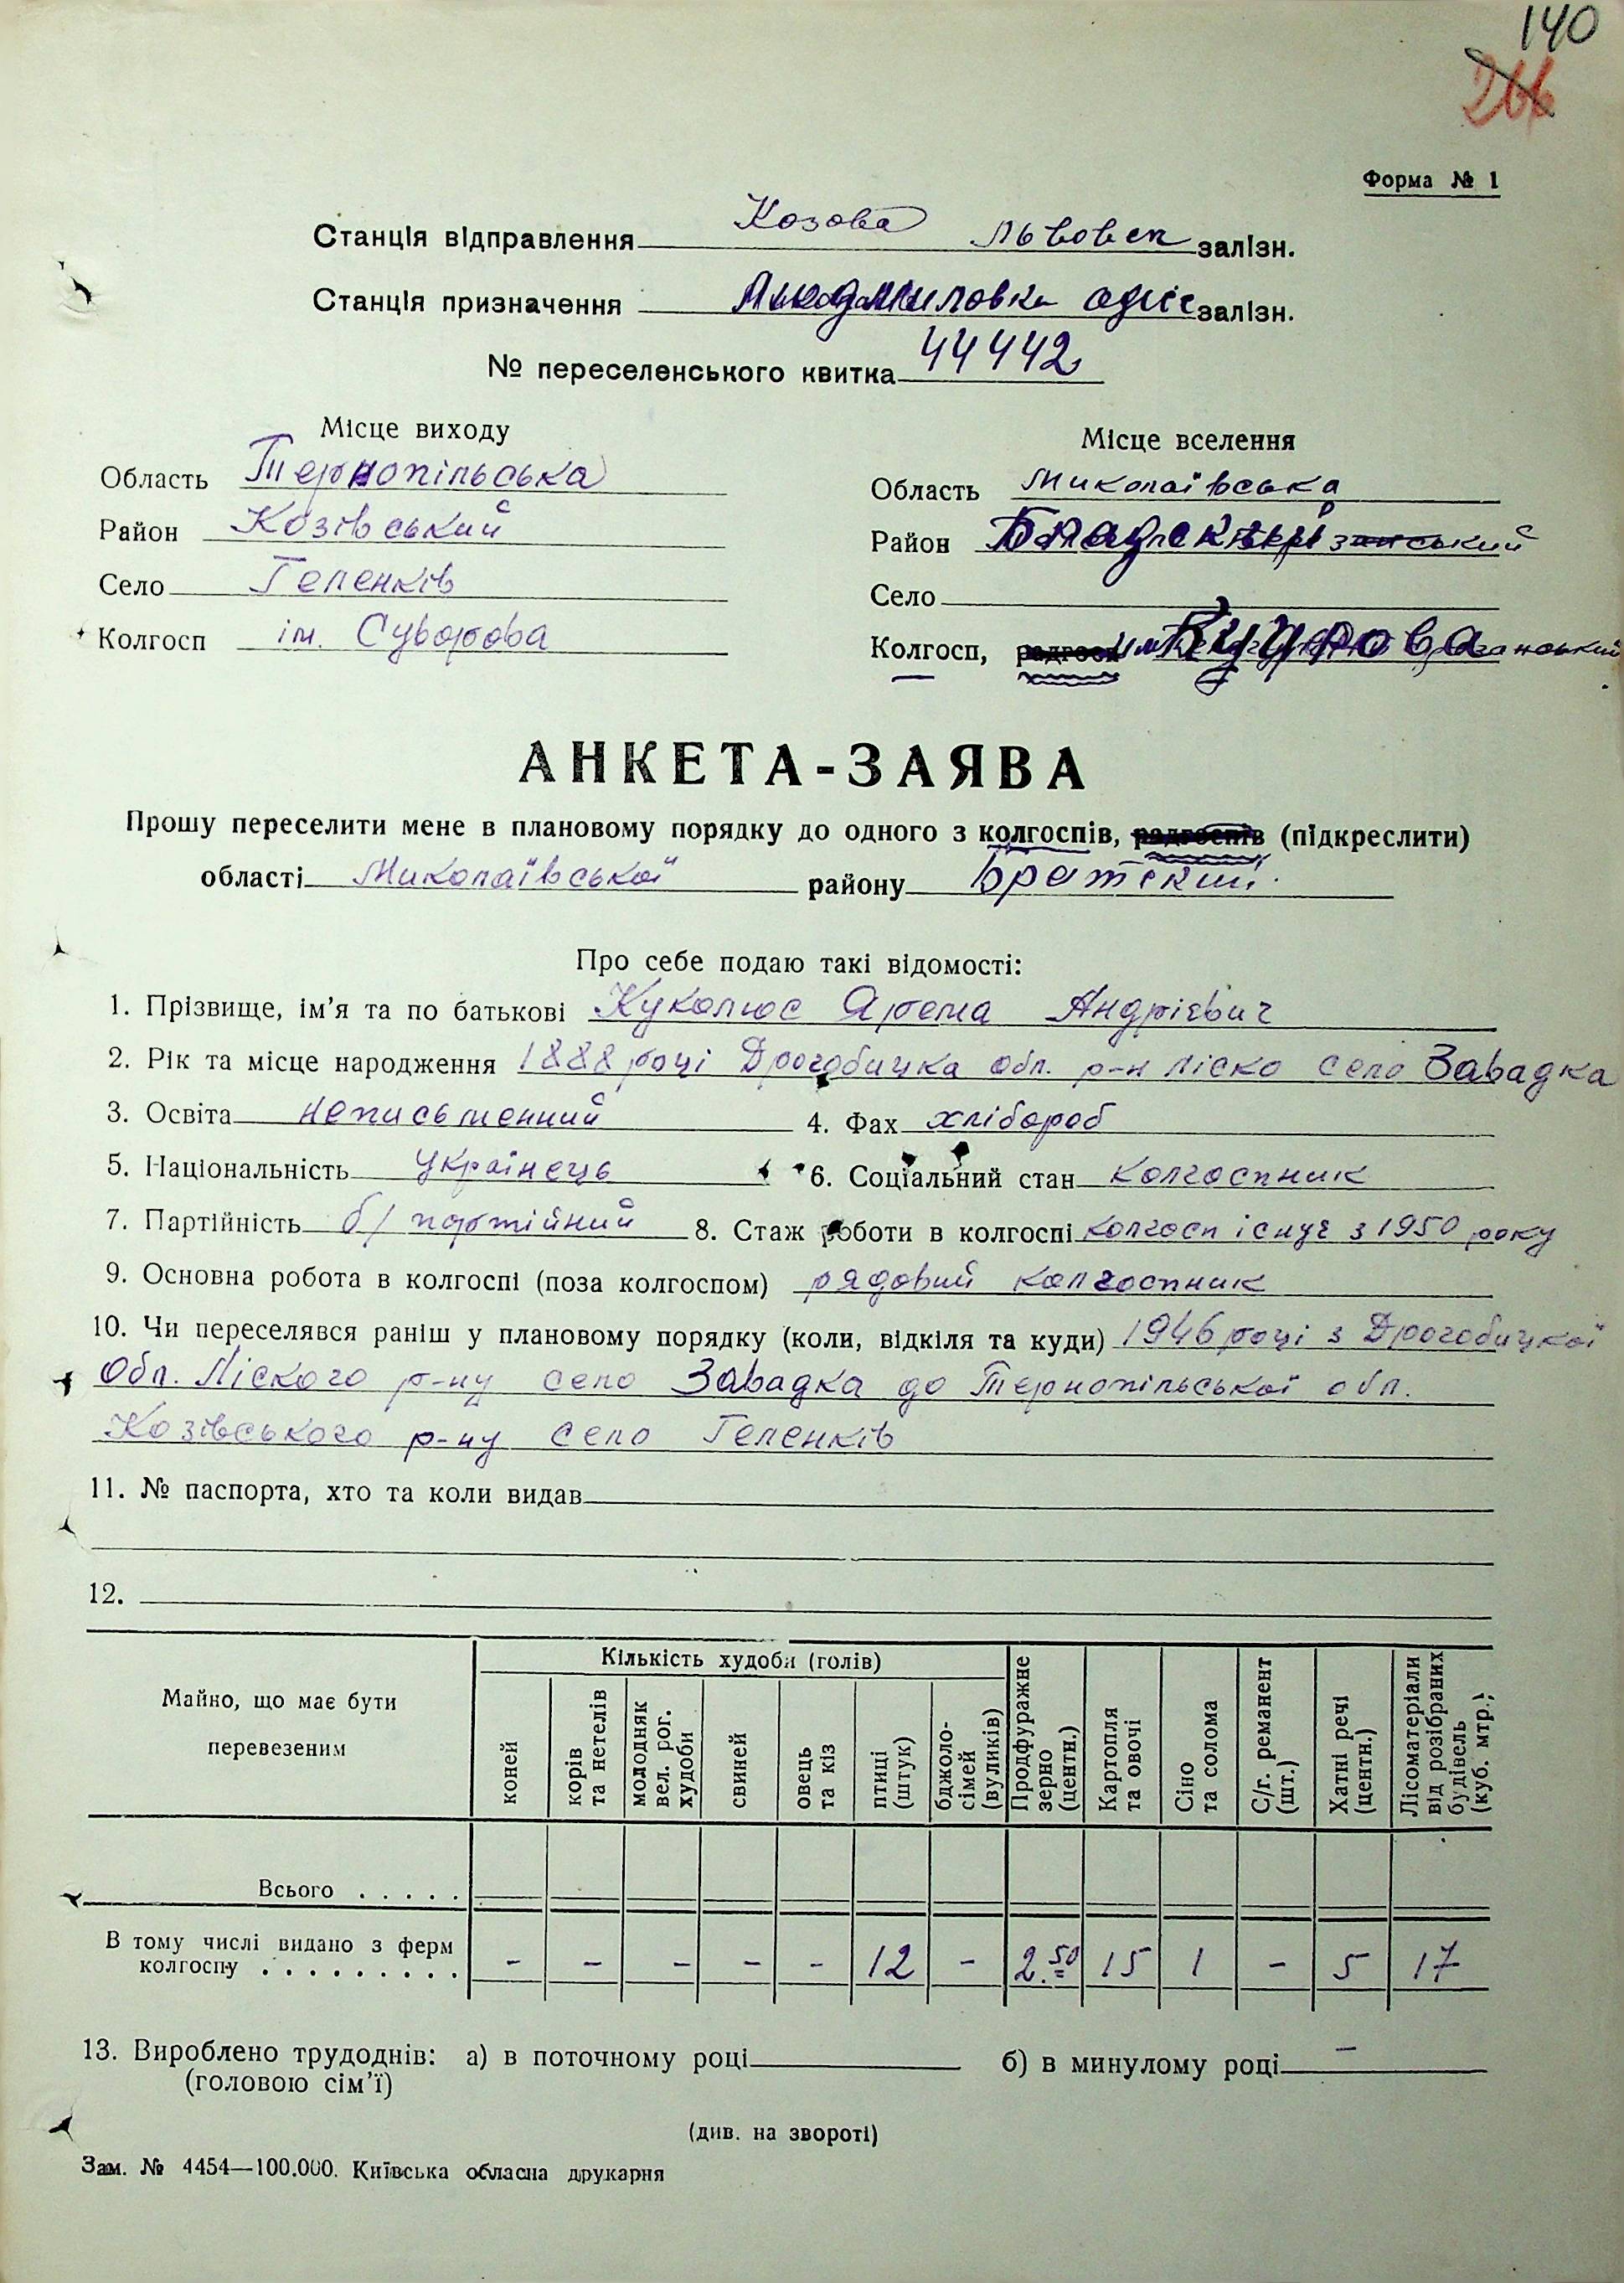 140
266
Форма № 1
Станція відправлення Козова Львовск залізн.
Станція призначення одіс залізн.
№ переселенського квитка 44442
Місце виходу
Область Тернопільська
Район Козівський
Село Геленків
Колгосп ім. Суворова
Місце вселення
Область Миколаївська
Район
Село
Колгосп, радгосп
АНКЕТА-ЗАЯВА
Прошу переселити мене в плановому порядку до одного з колгоспів, радгоспів (підкреслити)
області Миколаївської району Братский
Про себе подаю такі відомості:
1. Прізвище, ім'я та по батькові Куколюс Ярема Андрієвич
2. Рік та місце народження 1888 році Дрогобицка обл. р-н Ліско село Завадка
3. Освіта неписьменний 4. Фах хлібороб
5. Національність Українець 6. Соціальний стан колгоспник
7. Партійність б/партійний 8. Стаж роботи в колгоспі колгосп існує з 1950 року
9. Основна робота в колгоспі (поза колгоспом) рядовий колгоспник
10. Чи переселявся раніш у плановому порядку (коли, відкіля та куди) 1946 році з Дрогобицкої
Обл. Ліского р-ну село Завадка до Тернопільської обл.
Козівського р-ну село Геленків
11. № паспорта, хто та коли видав
12.
Майно, що має бути перевезеним
Кількість худоби (голів)
коней
корів та нетелів
молодняк вел. рог. худоби
свиней
овець та кіз
птиці (штук)
бджоло-сімей (вуликів)
Продфуражне зерно (центн.)
Картопля та овочі
Сіно та солома
С/г. реманент (шт.)
Хатні речі (центн.)
Лісоматеріали від розібраних будівель (куб. мтр.)
Всього . . . . .
В тому числі видано з ферм
колгоспу . . . . . . . . . - - - - - 12 - 2.50 15 1 - 5 17
13. Вироблено трудоднів: а) в поточному році б) в минулому році —
(головою сім'ї)
(див. на звороті)
Зам. № 4454—100.000. Київська обласна друкарня